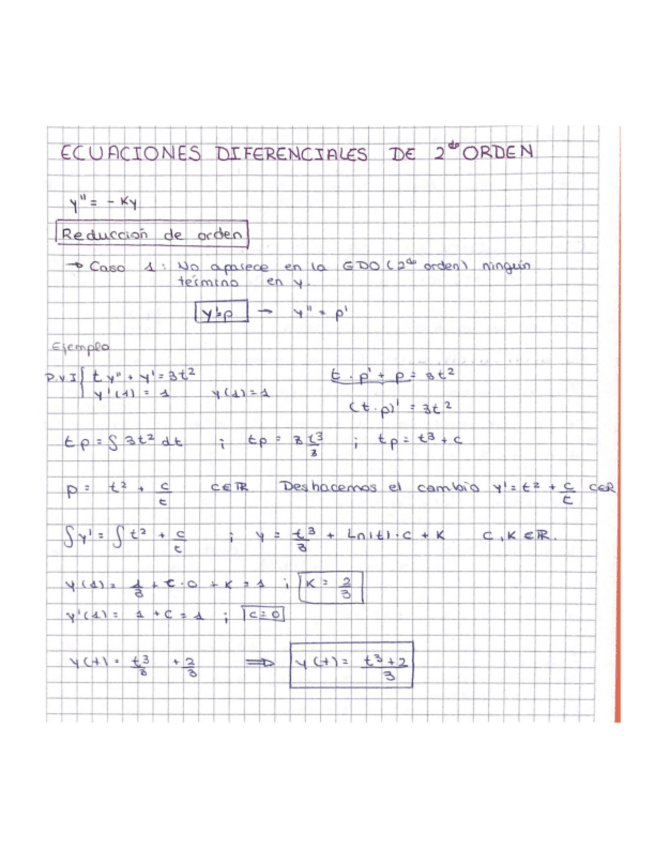 ECUACIONES DIFERENCIALES DE 2do ORDEN
y'' = - Ky
Reducción de orden
→ Caso 1: No aparece en la GDO (2do orden) ningún
término en y.
y'=p → y'' = p'
Ejemplo
P.V.I { t y'' + y' = 3t² t · p' + p = 3t²
y'(1) = 1 y(1) = 1
(t·p)' = 3t²
t p = ∫ 3t² dt ; tp = 3 t³/3 ; tp = t³ + c
p = t² + c/t c∈ℝ Deshacemos el cambio y' = t² + c/t c∈ℝ
∫y' = ∫ t² + c/t ; y = t³/3 + Ln(t)·c + K C, K ∈ ℝ.
y(1) = 1/3 + c·0 + K = 1 ; K = 2/3
y'(1) = 1 + C = 1 ; C = 0
y(t) = t³/3 + 2/3 ⇒ y(t) = t³+2/3